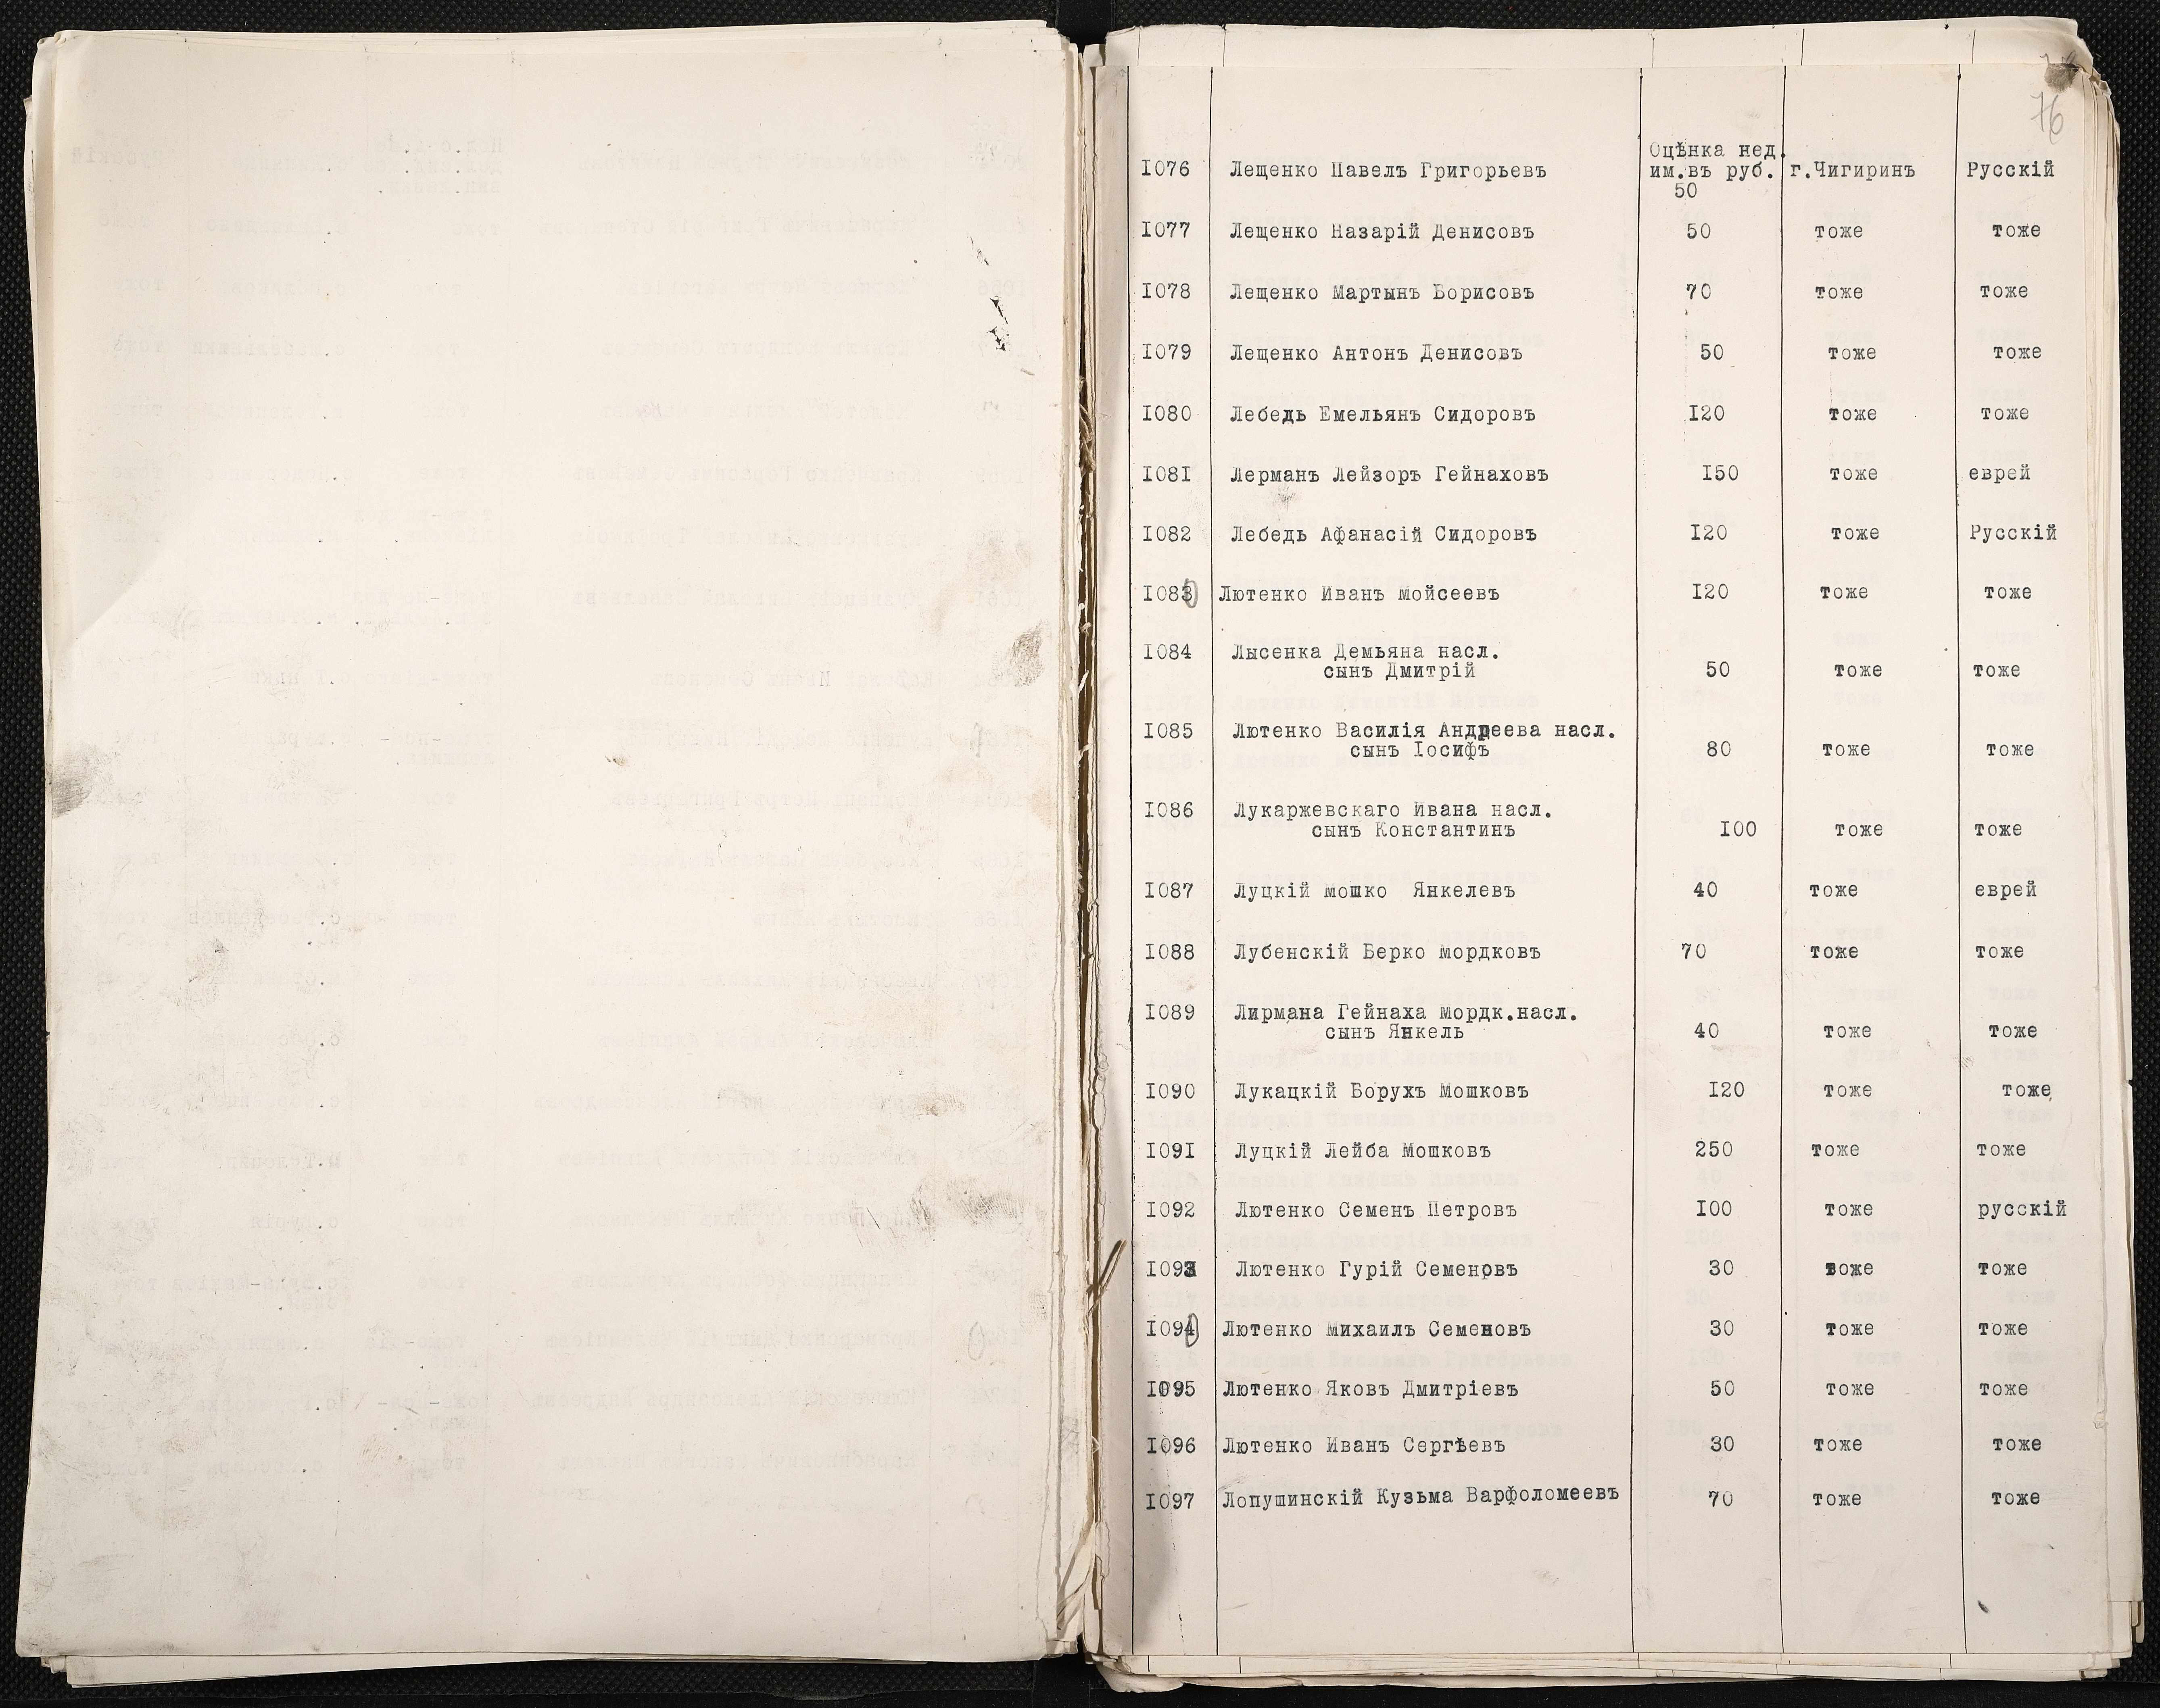 76
Оцѣнка нед.
1076 Лещенко Павелъ Григорьевъ им.въ руб. г.Чигиринъ Русскій
50
1077 Лещенко Назарій Денисовъ 50 тоже тоже
1078 Лещенко Мартынъ Борисовъ 70 тоже тоже
1079 Лещенко Антонъ Денисовъ 50 тоже тоже
1080 Лебедь Емельянъ Сидоровъ 120 тоже тоже
1081 Лерманъ Лейзоръ Гейнаховъ 150 тоже еврей
1082 Лебедь Афанасій Сидоровъ 120 тоже Русскій
1083 Лютенко Иванъ Мойсеевъ 120 тоже тоже
1084 Лысенка Демьяна насл.
сынъ Дмитрій 50 тоже тоже
1085 Лютенко Василія Андреева насл.
сынъ Іосифъ 80 тоже тоже
1086 Лукаржевскаго Ивана насл.
сынъ Константинъ 100 тоже тоже
1087 Луцкій Мошко Янкелевъ 40 тоже еврей
1088 Лубенскій Берко Мордковъ 70 тоже тоже
1089 Лирмана Гейнаха Мордк.насл.
сынъ Янкель 40 тоже тоже
1090 Лукацкій Борухъ Мошковъ 120 тоже тоже
1091 Луцкій Лейба Мошковъ 250 тоже тоже
1092 Лютенко Семенъ Петровъ 100 тоже русскій
1093 Лютенко Гурій Семеновъ 30 тоже тоже
1094 Лютенко Михаилъ Семеновъ 30 тоже тоже
1095 Лютенко Яковъ Дмитріевъ 50 тоже тоже
1096 Лютенко Иванъ Сергѣевъ 30 тоже тоже
1097 Лопушинскій Кузьма Варфоломеевъ 70 тоже тоже